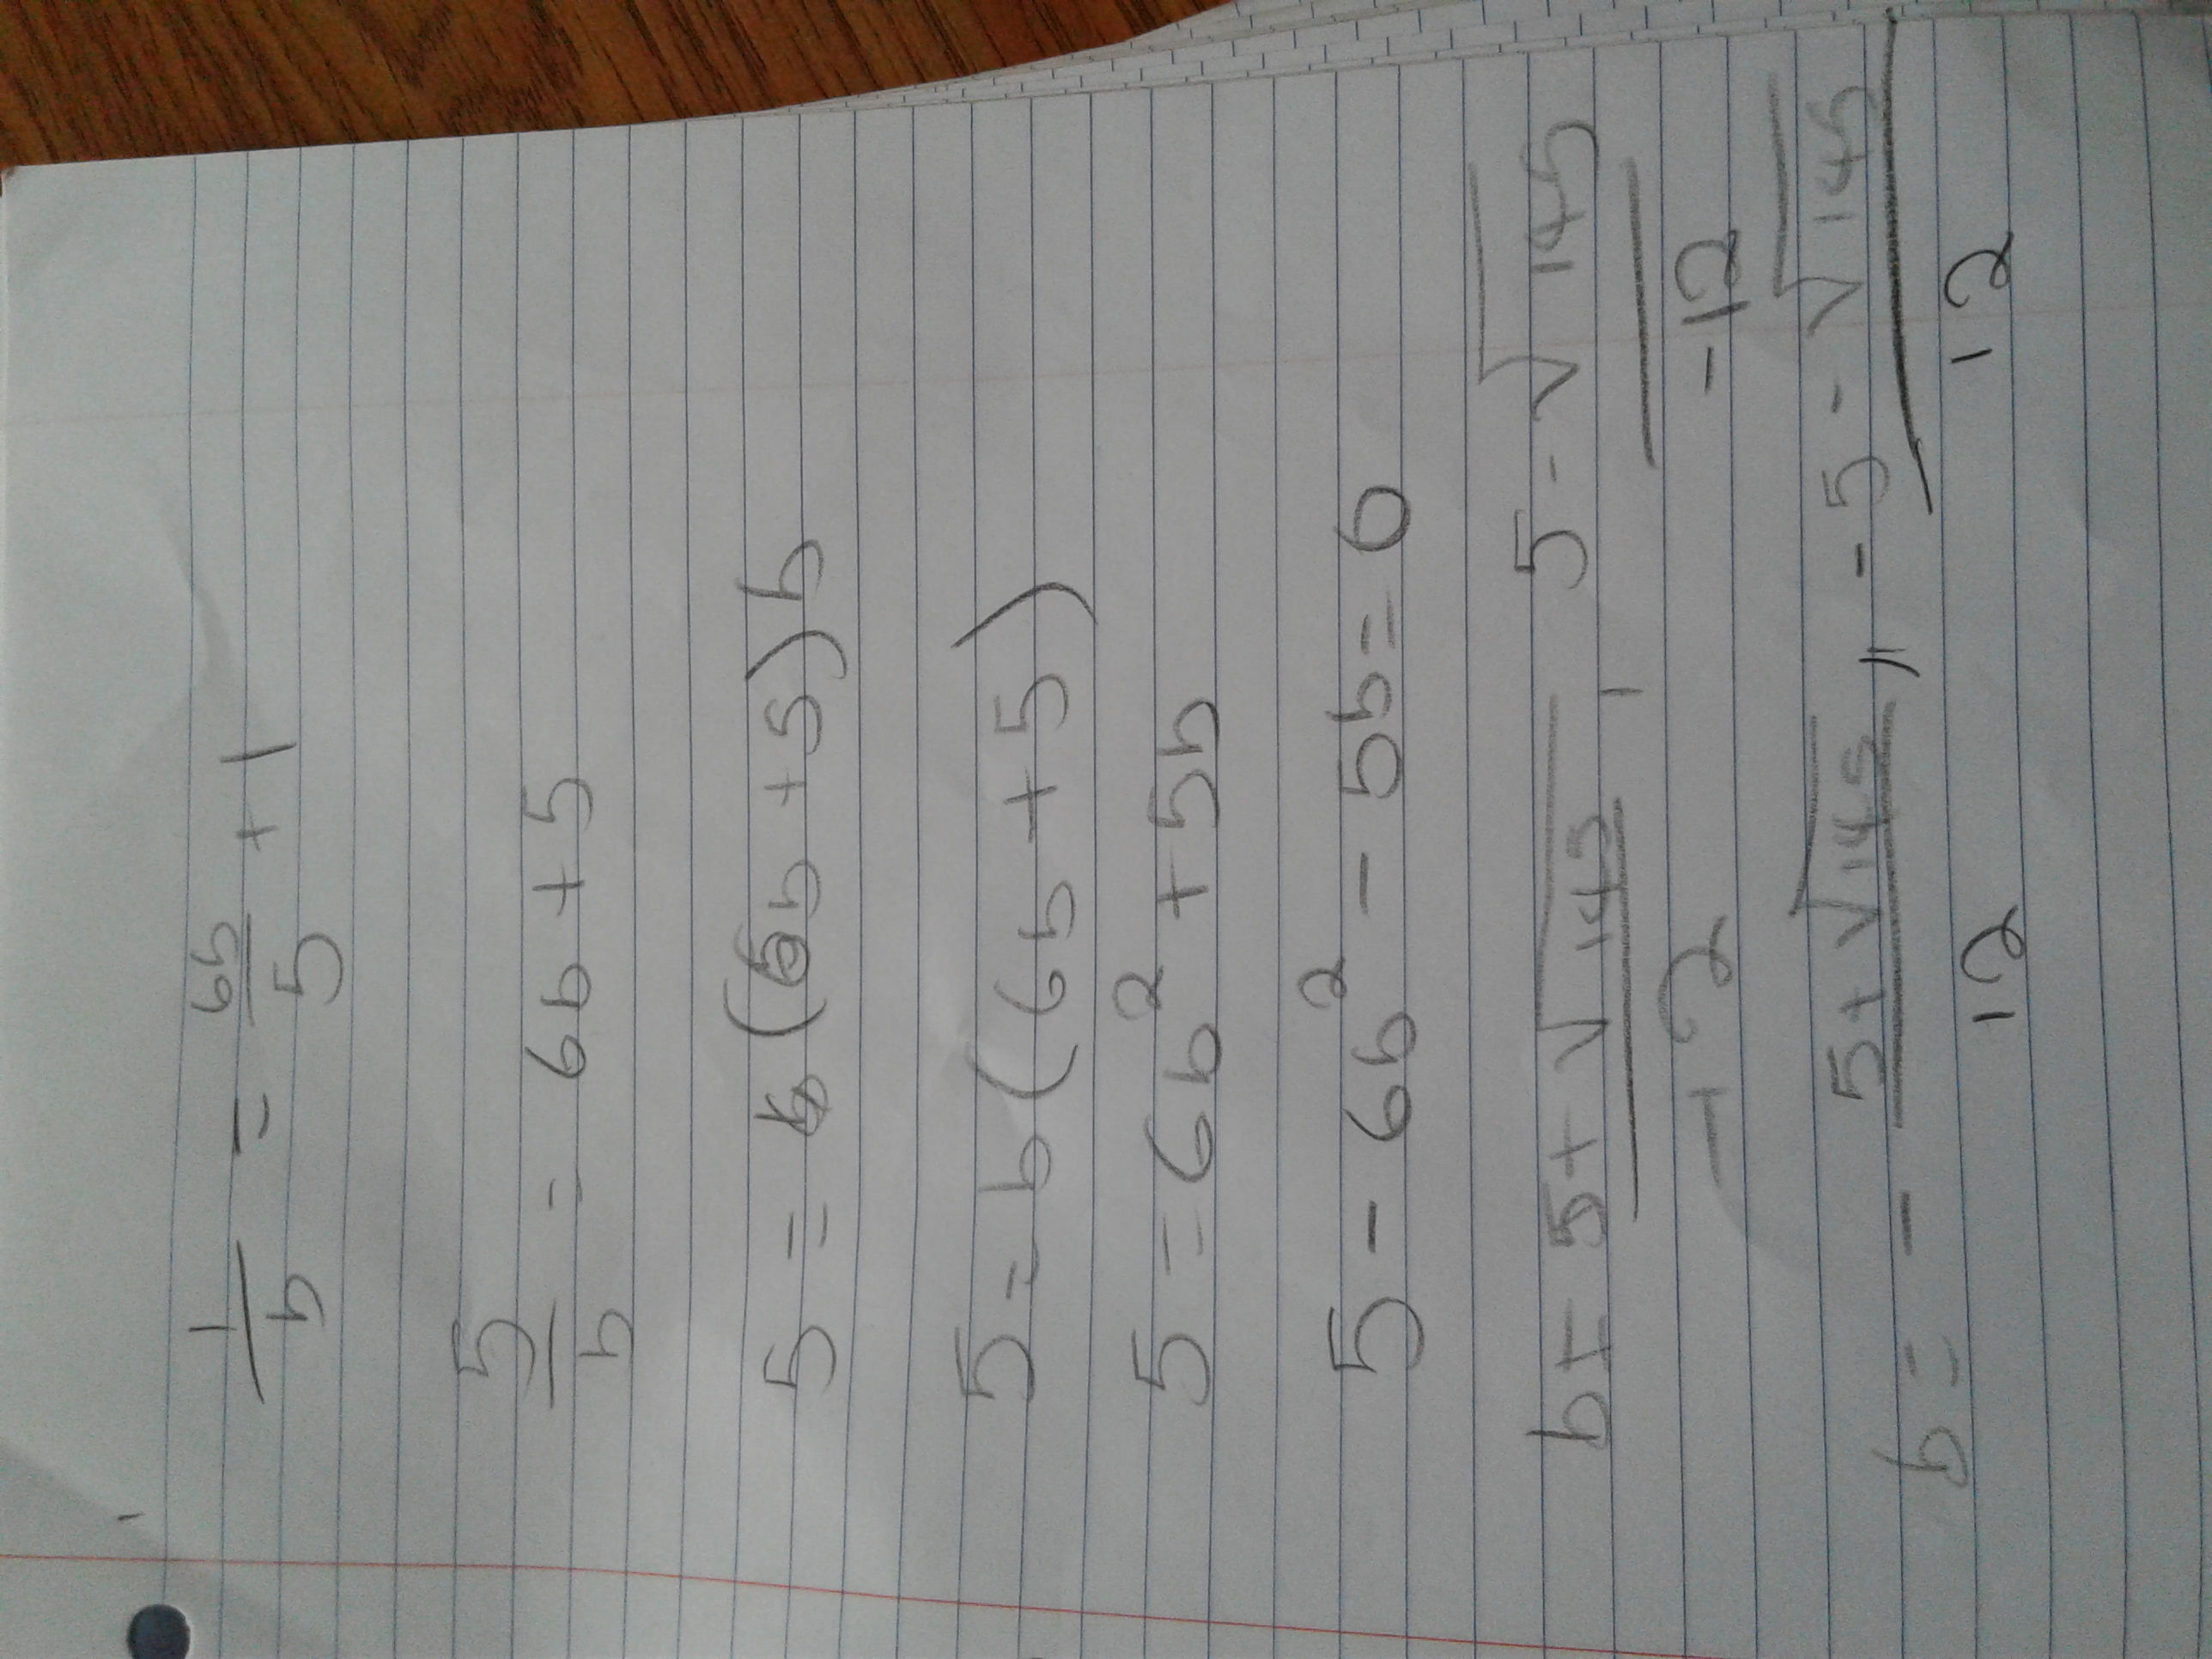 1/b = 6b/5 + 1
5/b = 6b + 5
5 = (6b + 5)b
5 = b(6b + 5)
5 = 6b² + 5b
5 - 6b² - 5b = 0
b = 5 + √145 / -12, 5 - √145 / -12
b = - 5 + √145 / 12, - 5 - √145 / 12